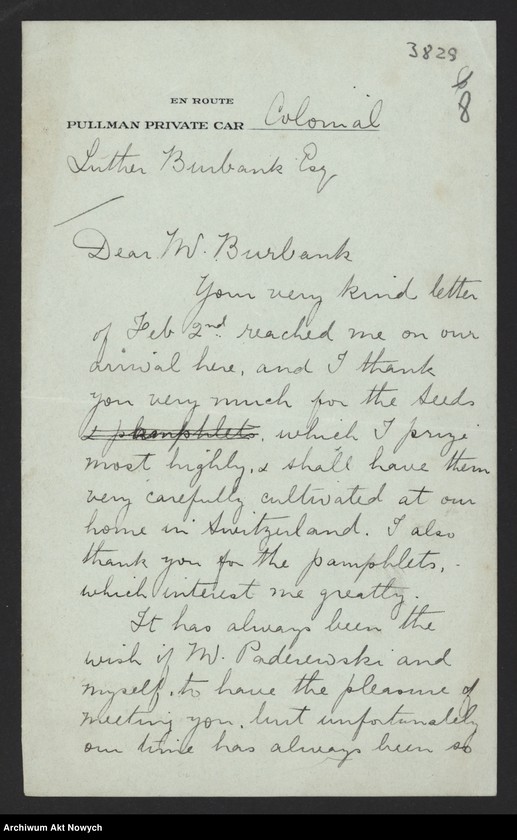 3829
8
EN ROUTE
PULLMAN PRIVATE CAR Colonial
Luther Burbank Esq
Dear Mr. Burbank
Your very kind letter
of Feb 2nd. reached me on our
arrival here, and I thank
you very much for the seeds
& pamphlets, which I prize
most highly, & shall have them
very carefully cultivated at our
home in Switzerland. I also
thank you for the pamphlets,
which interest me greatly.
It has always been the
wish of Mr. Paderewski and
myself, to have the pleasure of
meeting you, but unfortunately
our time has always been so
Archiwum Akt Nowych